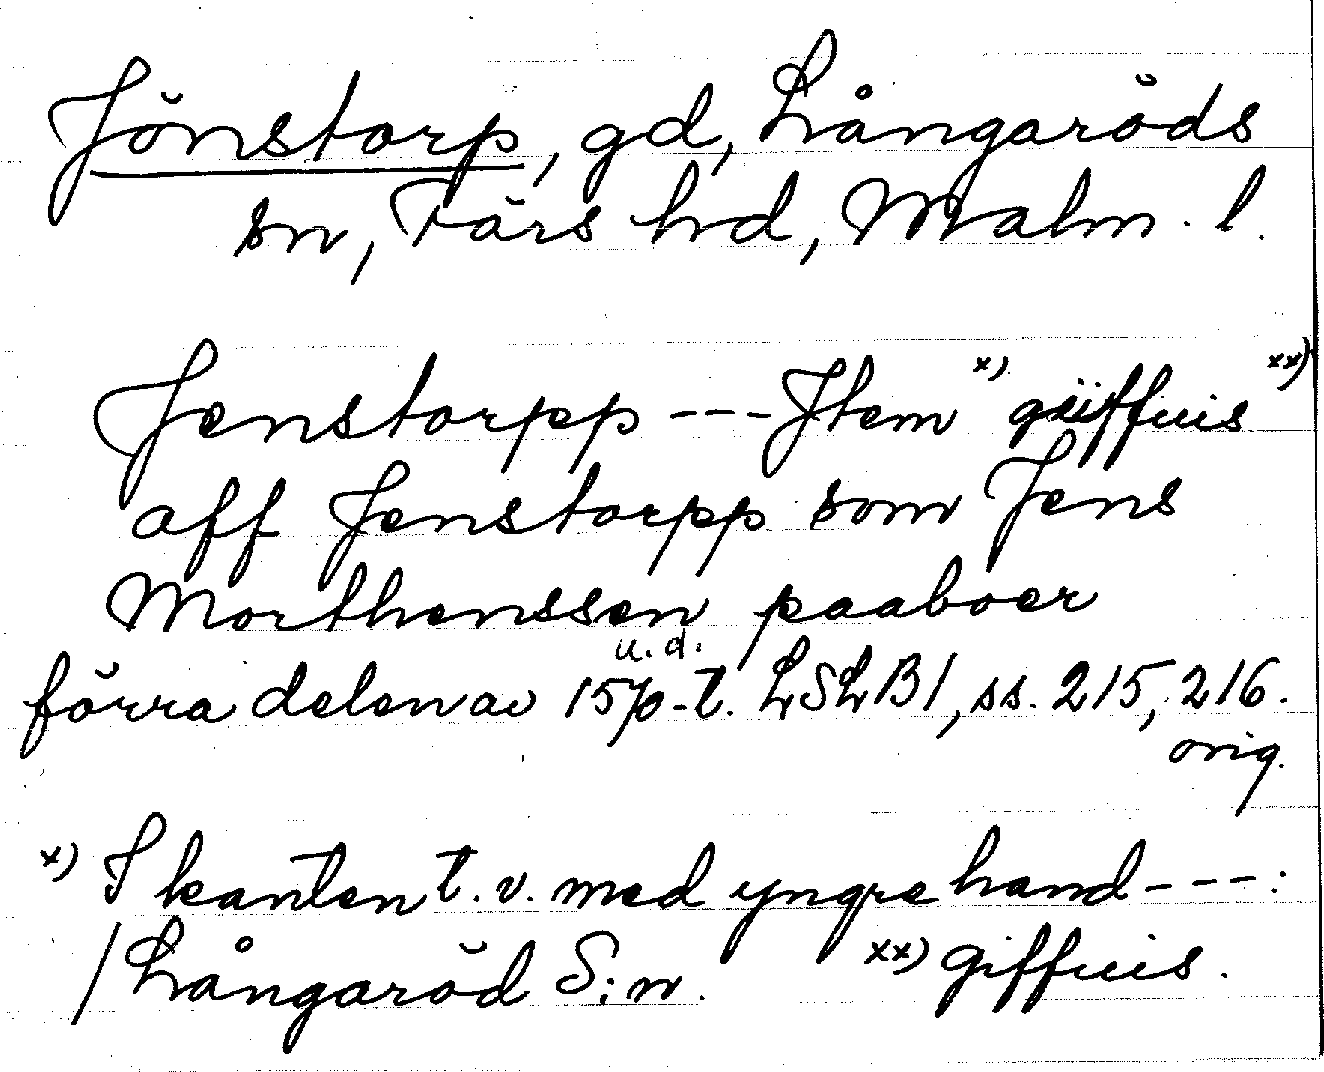 Jönstorp, gd, Långaröds
sn, Färs hd, Malm. l.
Jenstorpp --- Jtem x) giiffuis xx)
aff Jenstorpp som Jens
Morthenssen paaboer
u.d.
förra delen av 1570-t. LSLB1, ss. 215, 216.
orig.
x) I kanten t.v. med yngre hand ---:
/Långaröd S:n. xx) giffuis.